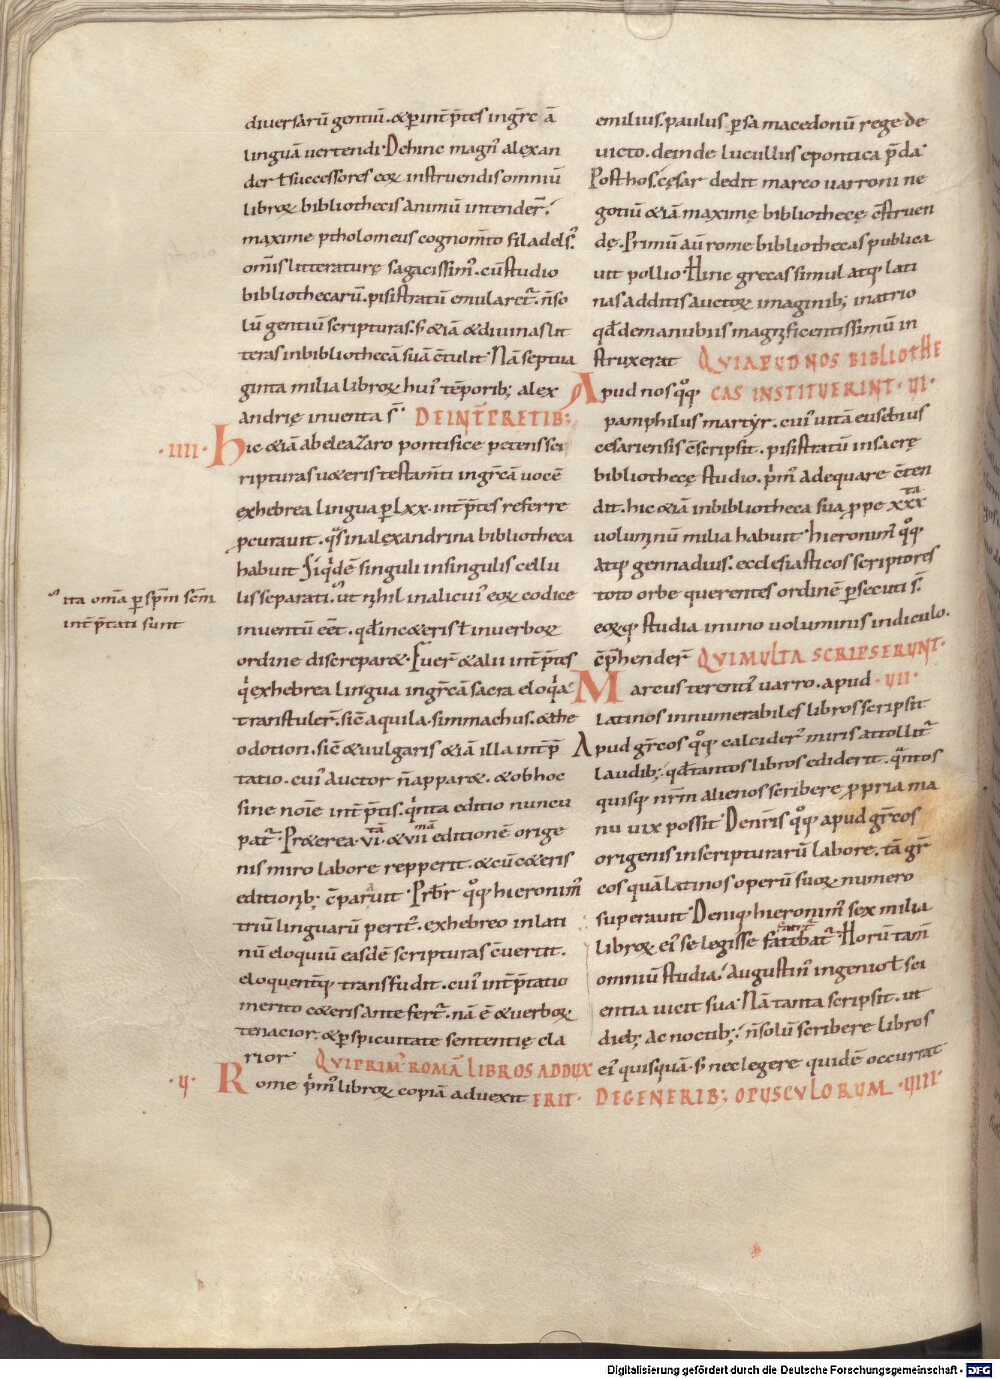 diuersarū gentiū. &ꝑ int̄p̄tes ingrē ā
linguā uertendi. Dehinc magnꝰ alexan
der ł successores eoꝝ instruendis omniū
libroꝝ bibliothecis animū intender̄.
maxime ptholomeus cognom̄to filadelfꝰ.
om̄is litteraturę sagacissimꝰ. cū studio
bibliothecarū. pisistratū emularet᷑. ñ so
lū gentiū scripturas. s; &iā & diuinas lit
teras in bibliothecā suā ctulit. Nā septua
ginta milia libroꝝ huiꝰ tēporib; alex
andrię inuenta s̄. DE INT̄P̄RETIB;
·IIII· Hic &iā ab eleazaro pontifice petens sc
ripturas u&eris testam̄ti in grēcā uocē
ex hebrea lingua ꝑ lxx. int̄p̄tes referre
ꝓcurauit. qͣs in alexandrina bibliotheca
habuit. Siqͥdē singuli in singulis cellu
lis separati. ut nihil in alicuiꝰ eoꝝ codice
ita om̄a ꝑ sp̄m sc̄m
int̄p̄tati sunt
inuentū eēt. qđ in c&eris ł in uerboꝝ
ordine discrepar&. Fuer̄ & alii int̄p̄tes
qͥ ex hebrea lingua in grēcā sacra eloqͥa
transtuler̄. sic̄ aquila. simmachus. & the
odotion. sic̄ & uulgaris &iā illa int̄p̄
tatio. cuiꝰ auctor ñ appar&. & ob hoc
sine noīe int̄p̄tis. qͥnta editio nuncu
pat᷑. Pr&erea. vi.tā & vii.mā editionē orige
nis miro labore repperit. & cū c&eris
editionib; c̄parauit. Prb̄r qͦq; hieronimꝰ
triū linguarū peritꝰ. ex hebreo in lati
nū eloquiū easdē scripturas c̄uertit.
eloquent̄q; transfudit. cuiꝰ int̄p̄tatio
merito c&eris antefert᷑. nā ē & uerboꝝ
tenacior. & ꝑspicuitate sententię cla
rior. QVI PRIMꝰ ROMĀ LIBROS ADDUX
·V· Rome p̄mꝰ libroꝝ copiā aduexit ERIT.
emilius. paulus ꝑsa macedonū rege de
uicto. deinde lucullus e pontica p̄da.
Post hos. cęsar dedit marco uarroni ne
gotiū &iā maximę bibliothecę c̄struen
dę. Primū aū rome bibliothecas publica
uit pollio. Hinc grecas simul atq; lati
nas additis auctoꝝ imaginib; in atrio
qđ de manubiis magnificentissimū in
struxerat QVI APUD NOS BIBLIOTHE
Apud nos qͦq; CAS INSTITVERINT. VI.
pamphilus martyr. cuiꝰ uitā eusebius
cesariensis c̄scripsit. pisistratū in sacrę
bibliothecę studio. p̄mꝰ adequare c̄ten
dit. hic &iā in bibliotheca sua ꝓpe xxx.ta
uoluminū milia habuit. hieronimꝰ qͦq;
atq; gennadius. ecclesiasticos scriptores
toto orbe querentes ordinē ꝑsecuti s̄.
eoꝝq; studia in uno uoluminis indiculo.
c̄p̄hender̄ QVI MULTA SCRIPSERUNT.
Marcus terentiꝰ uarro. apud ·VII·
latinos innumerabiles libros scripsit
Apud grēcos qͦq; calciderꝰ miris attollit᷑
laudib; qđ tantos libros ediderit. qͣntos
quisq; nr̄m alienos scribere ꝓpria ma
nu uix possit. De nr̄is qͦq; apud grēcos
origenis in scripturarū labore. tā gr̄
cos quā latinos operū suoꝝ numero
superauit. Deniq; hieronimꝰ sex milia
libroꝝ eiꝰ se legisse fatebat᷑. Horū tam̄
omniū studia. augustinꝰ ingenio ł sci
entia uicit sua. Nā tanta scripsit. ut
dieb; ac noctib; ñ solū scribere libros
eiꝰ quisquā. s; nec legere quidē occurrat
DE GENERIB; OPUSCVLORUM. VIII.
Digitalisierung gefördert durch die Deutsche Forschungsgemeinschaft - DFG